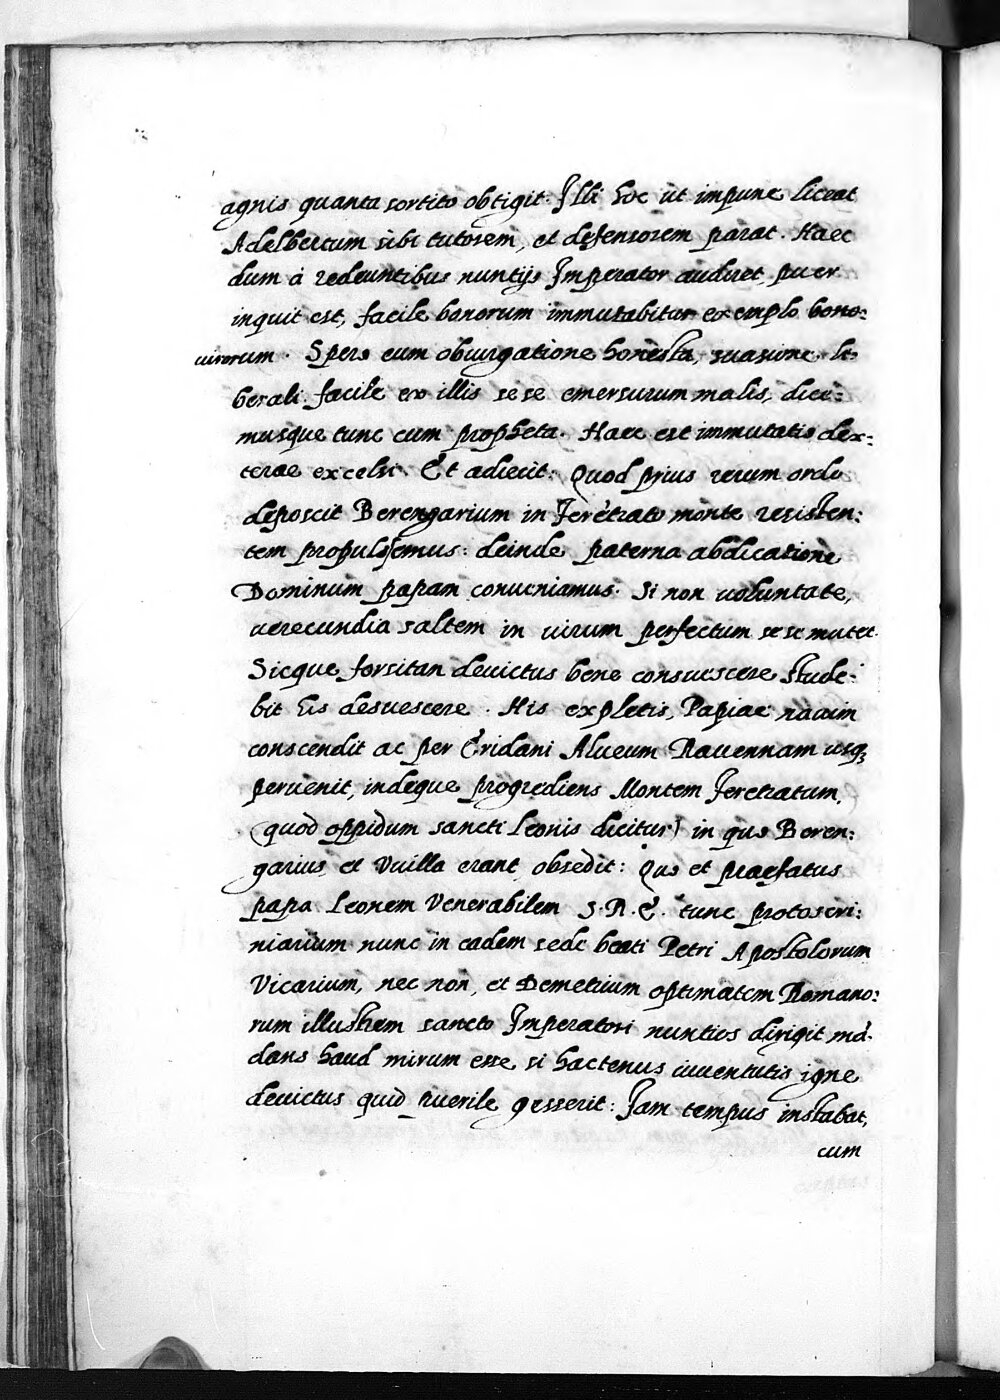 agnis quanta sortito obtigit. Illi hoc ut impune liceat
Adelbertum sibi tutorem, et defensorem parat. Haec
dum à redeuntibus nuntijs Imperator audiret, puer
inquit est, facile bonorum immutabitur exemplo bono:
uirorum. Spero eum obiurgatione honesta, suasione li:
berali facile ex illis sese emersurum malis, dice:
musque tunc cum propheta. Haec est immutatio dex:
terae excelsi. Et adiecit: Quod prius rerum ordo
deposcit Berengarium in Feretrato monte resisten:
tem propulsemus: deinde paterna abdicatione
Dominum papam conueniamus. Si non uoluntate,
uerecundia saltem in uirum perfectum sese mutet.
Sicque forsitan deuictus bene consuescere stude:
bit his desuescere. His expletis, Papiae nauim
conscendit ac per Eridani Alueum Rauennam usq;
peruenit, indeque progrediens Montem Feretratum,
(quod oppidum sancti Leonis dicitur) in quo Beren:
garius et Vuilla erant obsedit: Quo et praefatus
papa Leonem Venerabilem S. R. E. tunc protoscri:
niarium nunc in eadem sede beati Petri Apostolorum
Vicarium, nec non, et Demetrium optimatem Romano:
rum illustrem sancto Imperatori nuntios dirigit mã:
dans haud mirum esse si hactenus iuuentutis igne
deuictus quid puerile gesserit: Iam tempus instabat,
cum